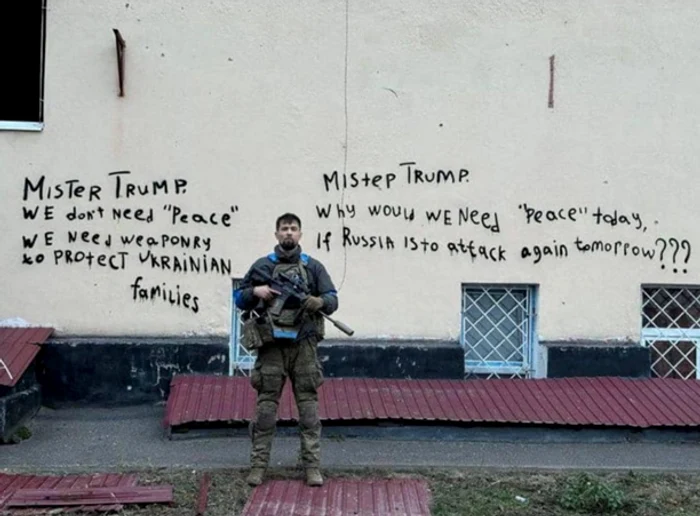 MISTER TRUMP.
WE don't NEED "Peace"
WE NEED WEAPONRY
to PROTECT UKRAINIAN
families
MISTEP TRUMP.
Why would WE NEED "peace" today,
If RUSSIA IS to attack again tomorrow???